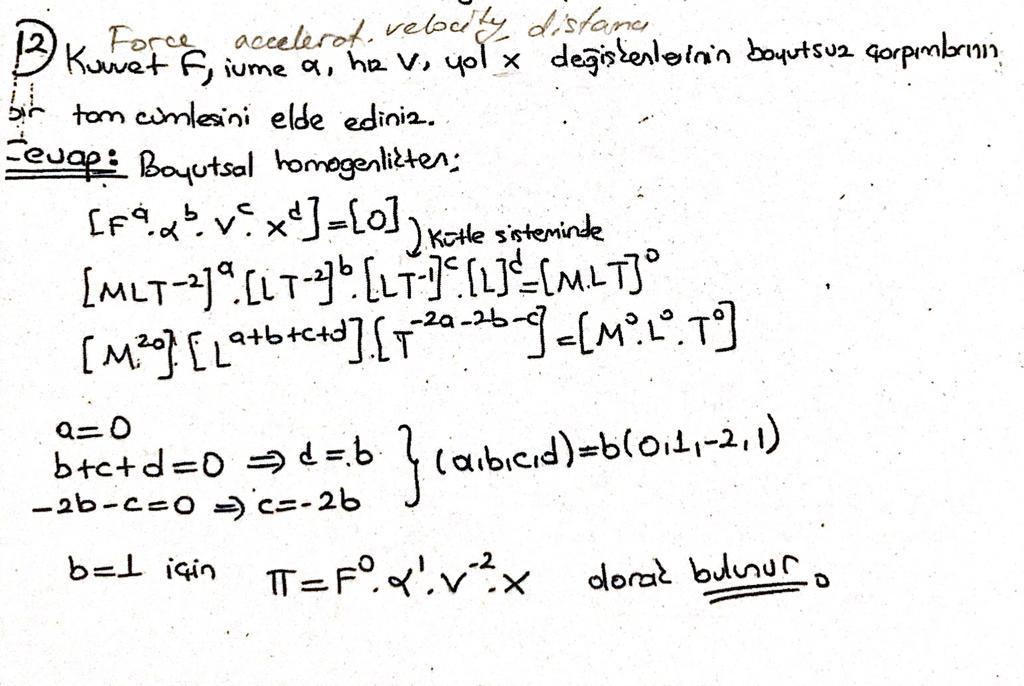 Force accelerat. velocity distanc
12) Kuvvet F, ivme α, hız V, yol x değişkenlerinin boyutsuz çarpımlarının
bir tam cümlesini elde ediniz.
Cevap: Boyutsal homogenlikten;
[F^a.α^b.V^c.x^d]=[0] ) Kütle sisteminde
[MLT-2]^a.[LT-2]^b.[LT-1]^c.[L]^d=[M.L.T]^0
[M.^2a].[L^a+b+c+d].[T^-2a-2b-c]=[M^0.L^0.T^0]
a=0
b+c+d=0 ⇒ d=b } (a,b,c,d)=b(0,1,-2,1)
-2b-c=0 ⇒ c=-2b
b=1 için π=F^0.α^1.V^-2.x olarak bulunur.